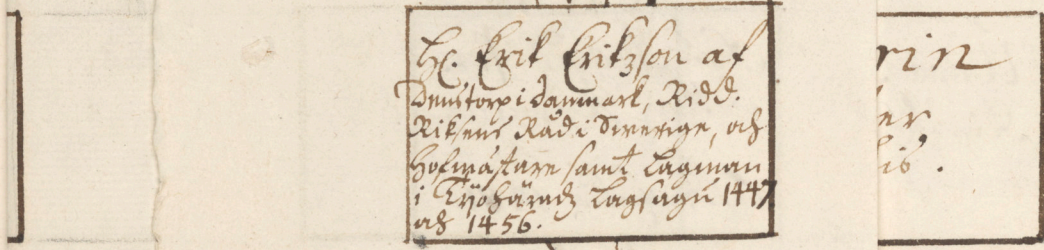 Hr. Erik Erikzson af
Demstorp i Danmark, Ridd.
Riksens Råd i Swerige, och
Hofmästare samt Lagman
i Tijohäradz Lagsagu 1447
och 1456.
rin
er
is.